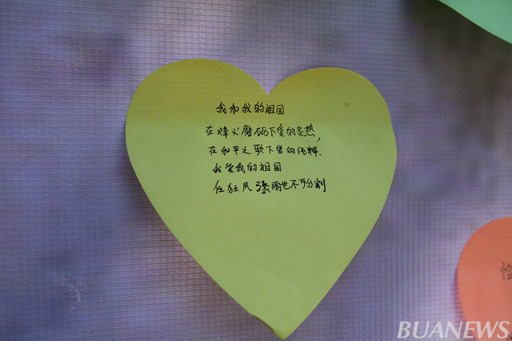 我和我的祖国
在烽火磨砺下爱的炙热,
在和平之歌下爱的纯粹.
我爱我的祖国
任狂风骤雨也不可分割
BUANEWS